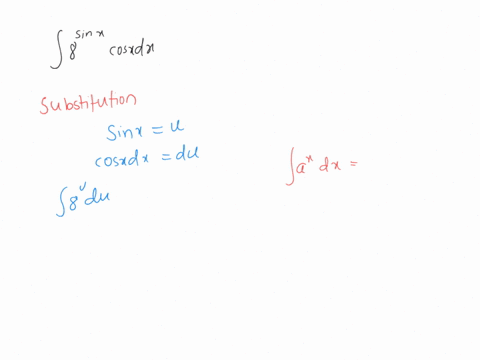 ∫ 8^{sin x} cosx dx
Substitution
sin x = u
cosx dx = du
∫ 8^u du
∫ a^x dx =